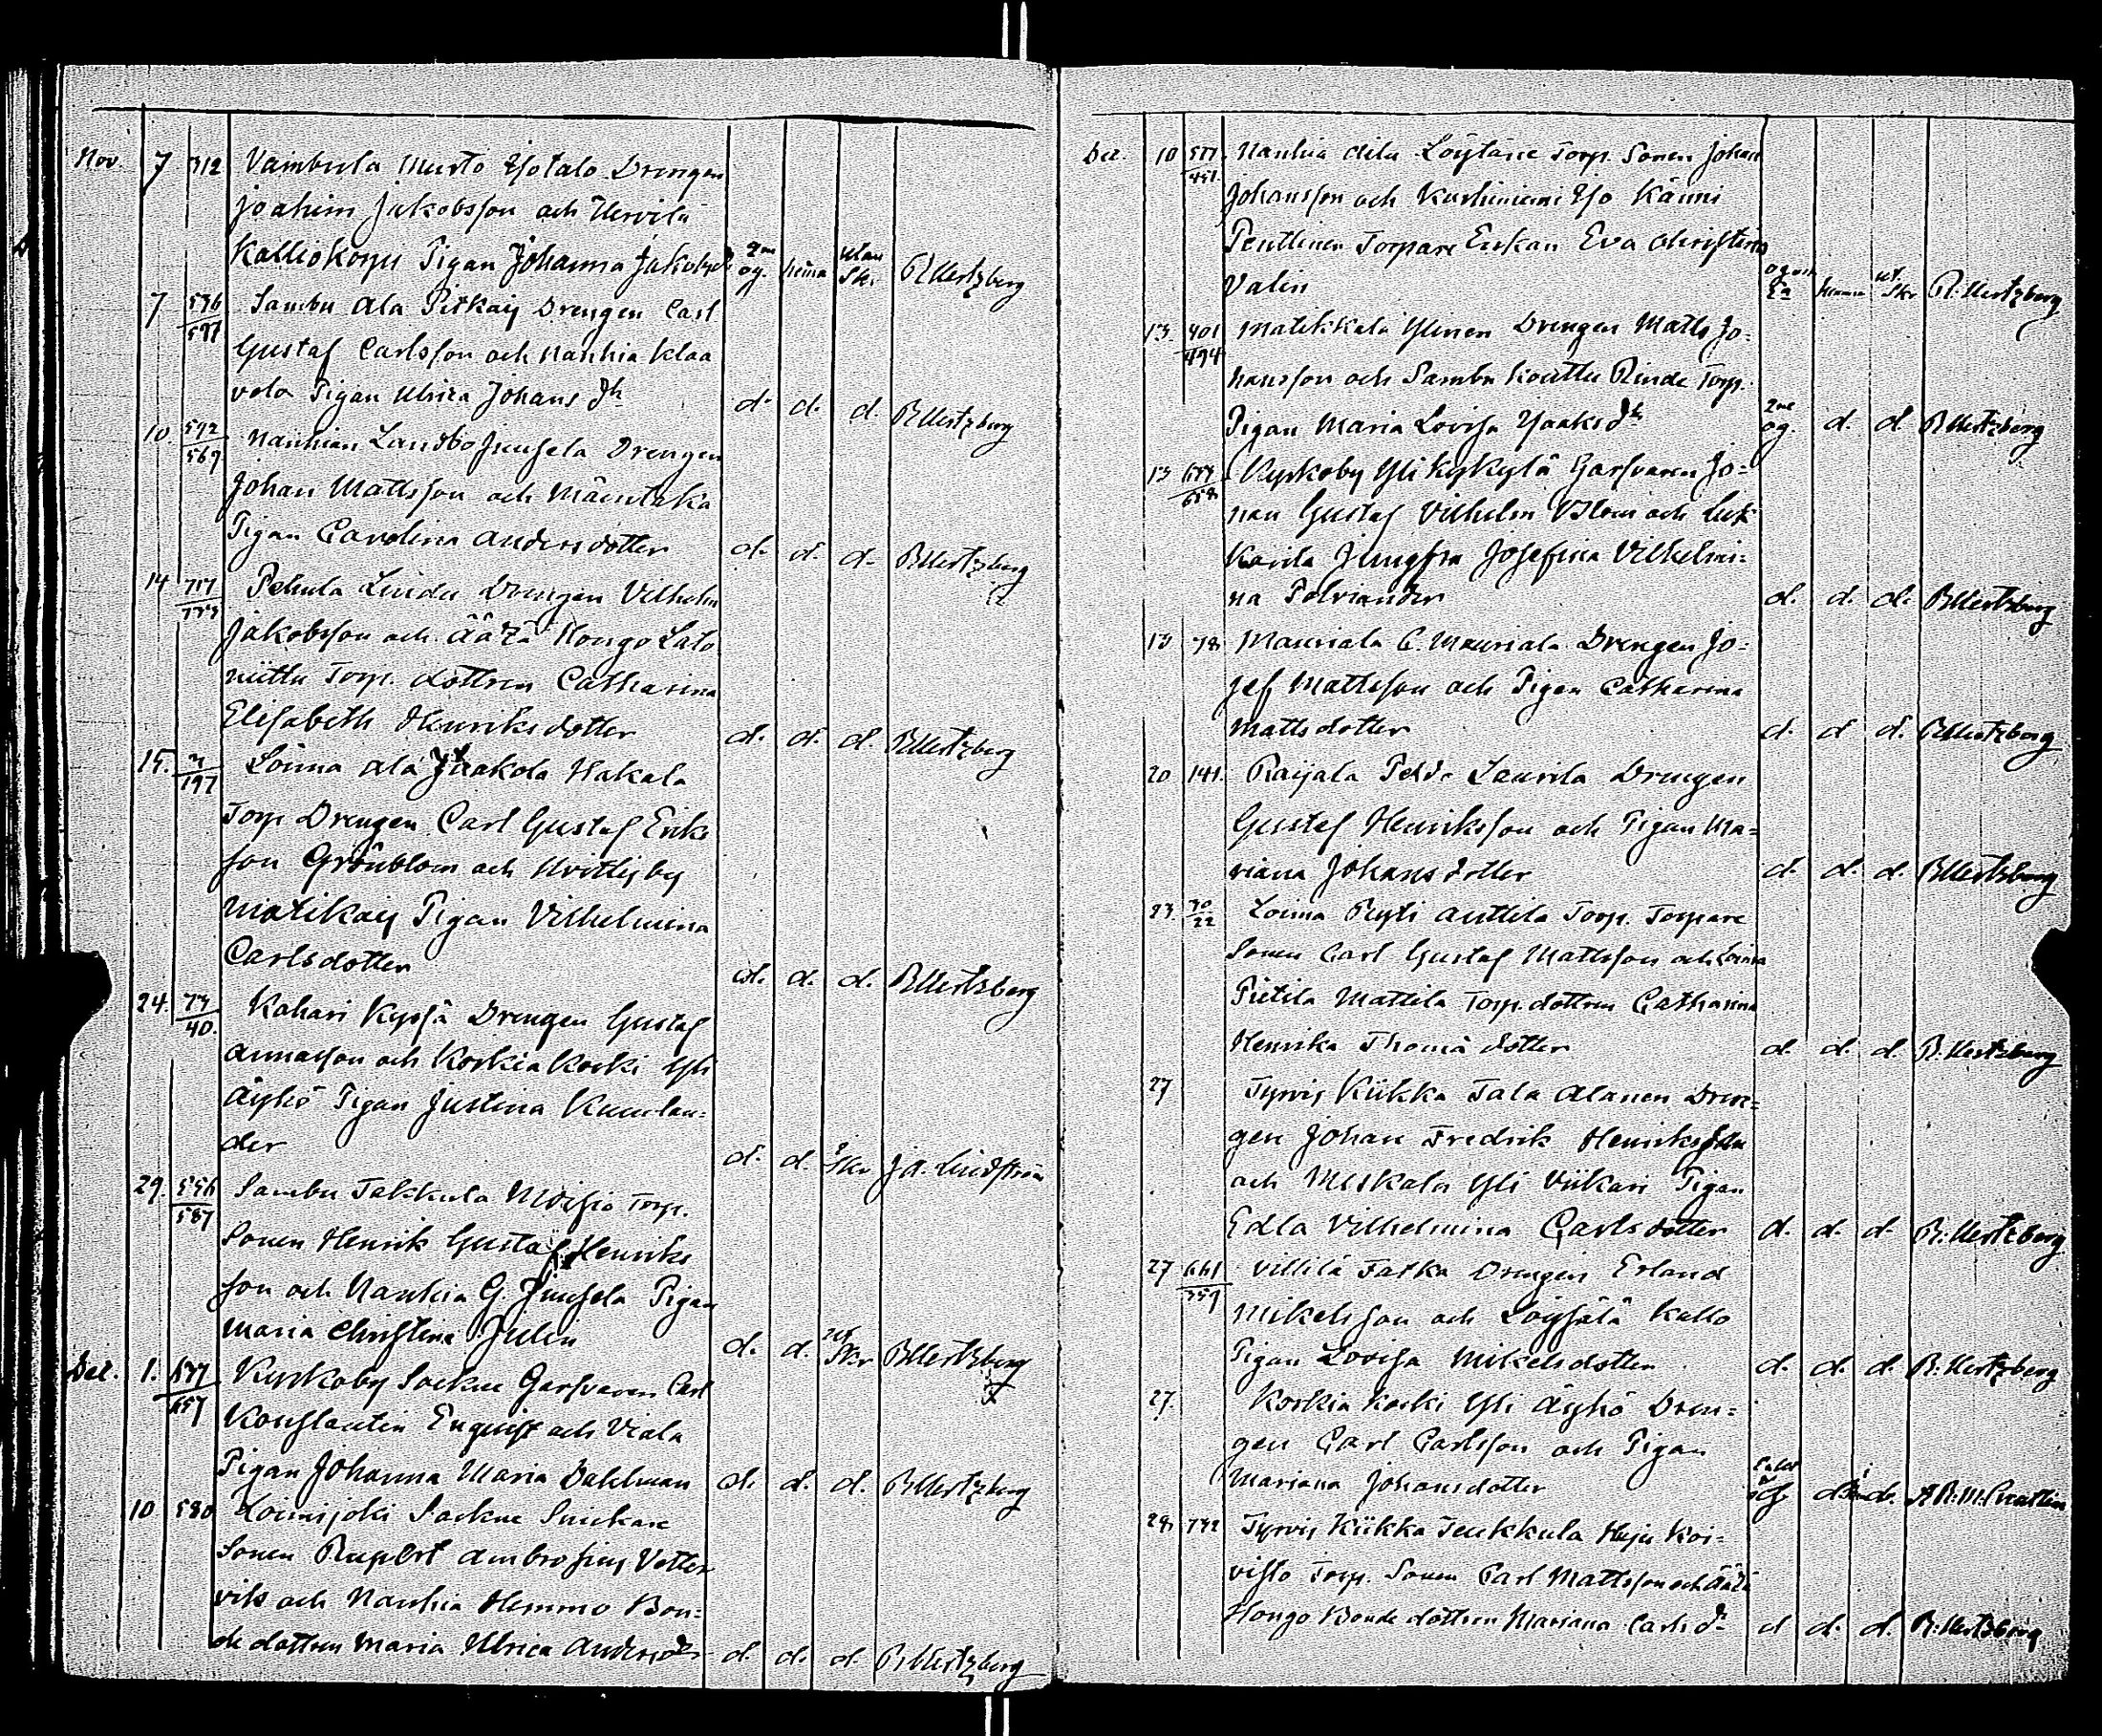 Nov. 7 312 Vambula Murto Ísotalo Drengen
Joahim Jakobsson och Virvilä
Kalliokorpi Pigan Johanna Jakobsd. 2ne äg. hema Utan Sk. R. Hertzberg
7 536/597 Sambu Ala Pitkäij Drengen Carl
Gustaf Carlsson och Nanhia Klaa
vola Pigan Ulrica Johans dr d. d. d. R. Hertzberg
10. 592/569 Nanhian Landbo Juusela Drengen
Johan Mattsson och Mäentaka
Pigan Carolina Andersdotter d. d. d. R. Hertzberg
14 717/773 Pehula Lindu Drengen Vilhelm
Jakobsson och Äätzä Hongo Lato
niittu Torp. dottren Catharina
Elisabeth Henriksdotter d. d. d. R. Hertzberg
15. 197 Loima Ala Jaakola Hakala
Torp Drengen Carl Gustaf Eriks
son Grönblom och Hvittisby
Matikaij Pigan Vilhelmina
Carlsdotter d. d. d. R. Hertzberg
24. 73/40. Kahari Kyssä Drengen Gustaf
Annasson och Korkiakoski Yli
Äyhö Pigan Justina Kumlan=
der d. d. Skr J. A. Lindström
29. 556/587 Sambu Takkula Moisio Torp.
Sonen Henrik Gustaf Henriks
son och Nanhia G. Juusela Pigan
Maria Christina Julin d. d. ut Skr R. Hertzberg
Dec. 1. 677/657 Kyrkoby Sockne Garfvaren Carl
Konstantin Enqvist och Viala
Pigan Johanna Maria Dahlman d. d. d. R. Hertzberg
10 580 Loimijoki Sockne Snickare
Sonen Rupert Ambrosius Vetter
vik och Nanhia Hemmo Bon=
de dottren Maria Ulrica Andersdr d. d. d. R. Hertzberg
Dec. 10 577/451. Nanhia Löytäne Torp. Sonen Johan
Johansson och Kurkiniemi Iso Känni
Penttinen Torpare Enkan Eva Christina
Valin ut Skr R. Hertzberg
13. 401/494 Matikkala Ylinen Drengen Matts Jo=
hansson och Sambu Kouttu Rinde Torp.
Pigan Maria Lovisa Isaks dr 2ne äg. d. d. R. Hertzberg
13 677/658 Kyrkoby Yli Kyskylä Garfvaren Jo=
han Gustaf Vilhelm Blom och Luk
Kavila Jungfru Josefina Vilhelmi=
na Polviander d. d. d. R. Hertzberg
13 78 Mauriala C. Mauriala Drengen Jo=
sef Mattsson och Pigan Catharina
Mattsdotter d. d. d. R. Hertzberg
20 141. Raijala Laurila Drengen
Gustaf Henriksson och Pigan Ma=
riana Johansdotter d. d. d. R. Hertzberg
23. 30/22 Loima Anttila Torp. Torpare
Sonen Carl Gustaf Mattsson och Loima
Pietila Mattila Torp. dottren Catharina
Henrika Thomä dotter d. d. d. R. Hertzberg
27 Tyrvis Kiikka Tala Alanen Dren=
gen Johan Fredrik Henriksson
och Meskala Yli Viikari Pigan
Edla Vilhelmina Carlsdotter d. d. d. R. Hertzberg
27 661/359 Villilä Tarka Drengen Erland
Mikelsson och Löysälä Kallo
Pigan Lovisa Mikelsdotter d. d. d. R. Hertzberg
27. Korkiakoski Yli Äyhö Dren=
gen Carl Carlsson och Pigan
Mariana Johansdotter
28. 732 Tyrvis Kiikka Jeukkula Koi=
visto Torp. Sonen Carl Mattsson och Äätzä
Hongo Bonde dottren Mariana Carls dr d d. d. R. Hertzberg